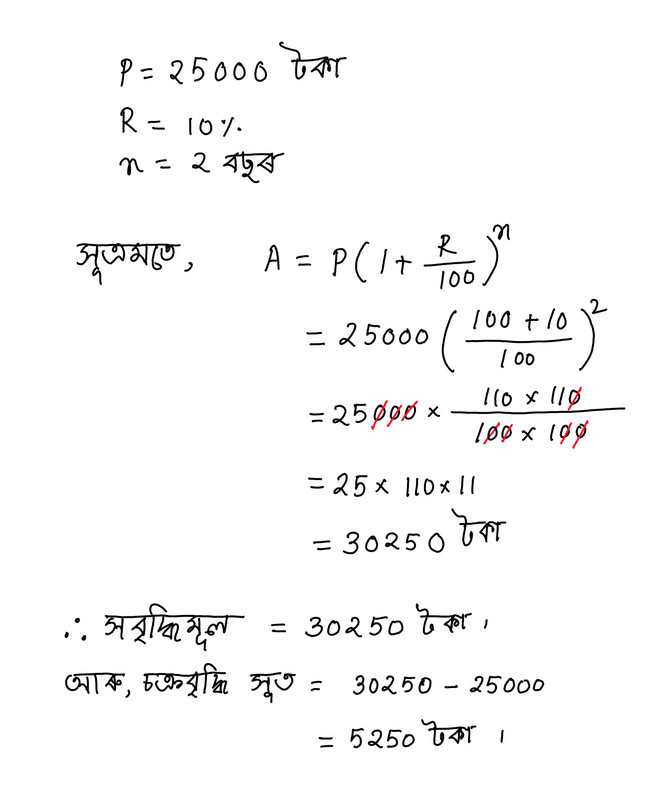 P = 25000 টকা
R = 10%.
n = 2 বছৰ
সূত্ৰমতে, A = P(1 + R/100)^n
= 25000 ((100 + 10)/100)^2
= 25000 × (110 × 110)/(100 × 100)
= 25 × 110 × 11
= 30250 টকা
∴ সবৃদ্ধিমূল = 30250 টকা ।
আৰু, চক্ৰবৃদ্ধি সুত = 30250 – 25000
= 5250 টকা ।